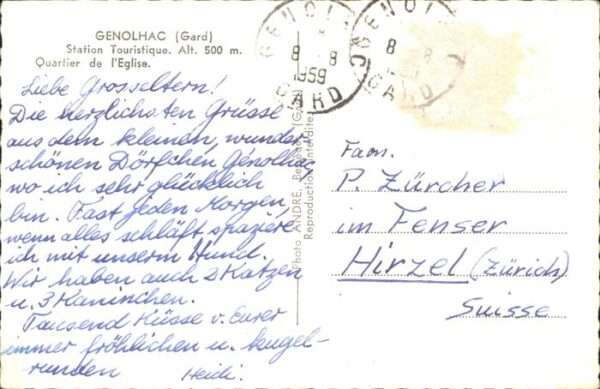 GENOLHAC (Gard)
Station Touristique. Alt. 500 m.
Quartier de l'Eglise.
GENOL
8 8
1959
GARD
GENOL
8 8
GARD
Liebe Grosseltern!
Die herzlichsten Grüsse
aus dem kleinen, wunder
schönen Dörfchen Génolhac
wo ich sehr glücklich
bin. Fast jeden Morgen,
wenn alles schläft spaziere
ich mit unserm Hund.
Wir haben auch 2 Katzen
u. 3 Kaninchen.
Tausend Küsse v. Eurer
immer fröhlichen u. kugel-
runden Heidi.
Photo ANDRÉ, (Gard)
Reproduction interdite
Fam.
P. Zürcher
im Fenser
Hirzel (Zürich)
Suisse